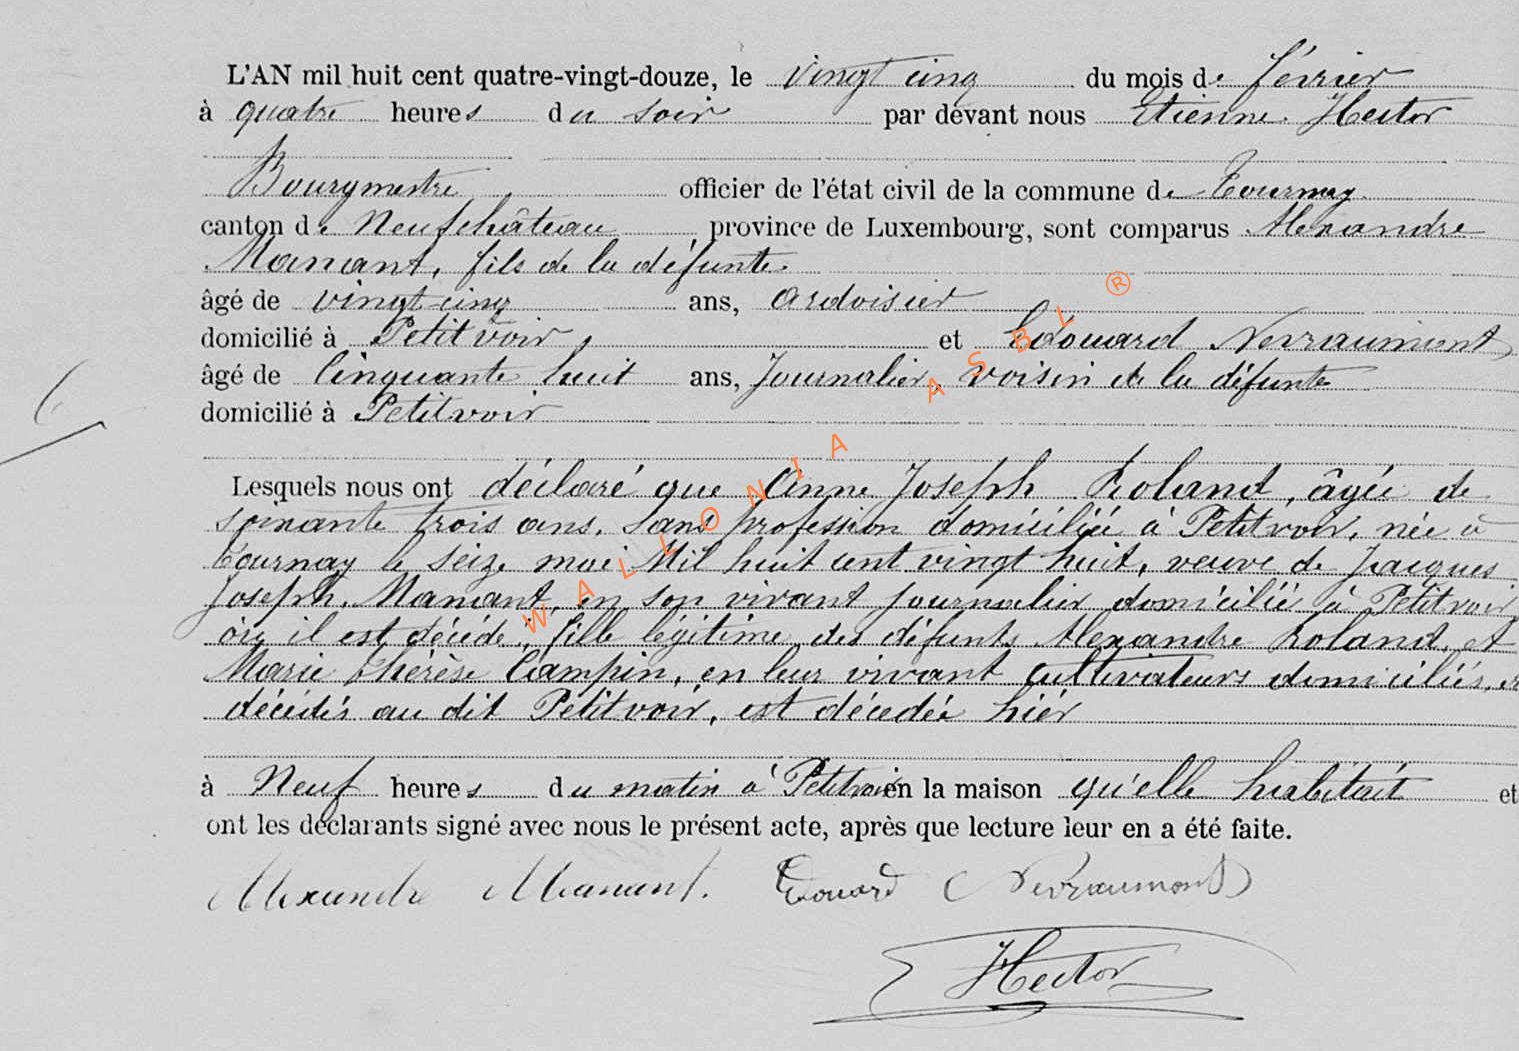 L'AN mil huit cent quatre-vingt-douze, le vingt cinq du mois de février
à quatre heures du soir par devant nous Etienne Hector
Bourgmestre officier de l'état civil de la commune de Tournay
canton de Neufchâteau province de Luxembourg, sont comparus Alexandre
Manant, fils de la défunte.
âgé de vingt-cinq ans, ardoisier
domicilié à Petitvoir, et Edouard Nevraumont
âgé de Cinquante huit ans, Journalier, voisin de la défunte
domicilié à Petitvoir
6
Lesquels nous ont déclaré que Anne Joseph Roland, âgée de
soixante trois ans, sans profession domiciliée à Petitvoir, née à
Tournay le seize mai Mil huit cent vingt huit, veuve de Jacques
Joseph Manant, en son vivant journalier domicilié à Petitvoir
où il est décédé, fille légitime des défunts Alexandre Roland et
Marie thérèse Campin, en leur vivant cultivateurs domiciliés, et
décédés au dit Petitvoir, est décédée hier
à Neuf heures du matin à Petitvoir en la maison qu'elle habitait et
ont les déclarants signé avec nous le présent acte, après que lecture leur en a été faite.
Alexandre Manant. Edouard Nevraumont
Hector
WALLONIA ASBL ®